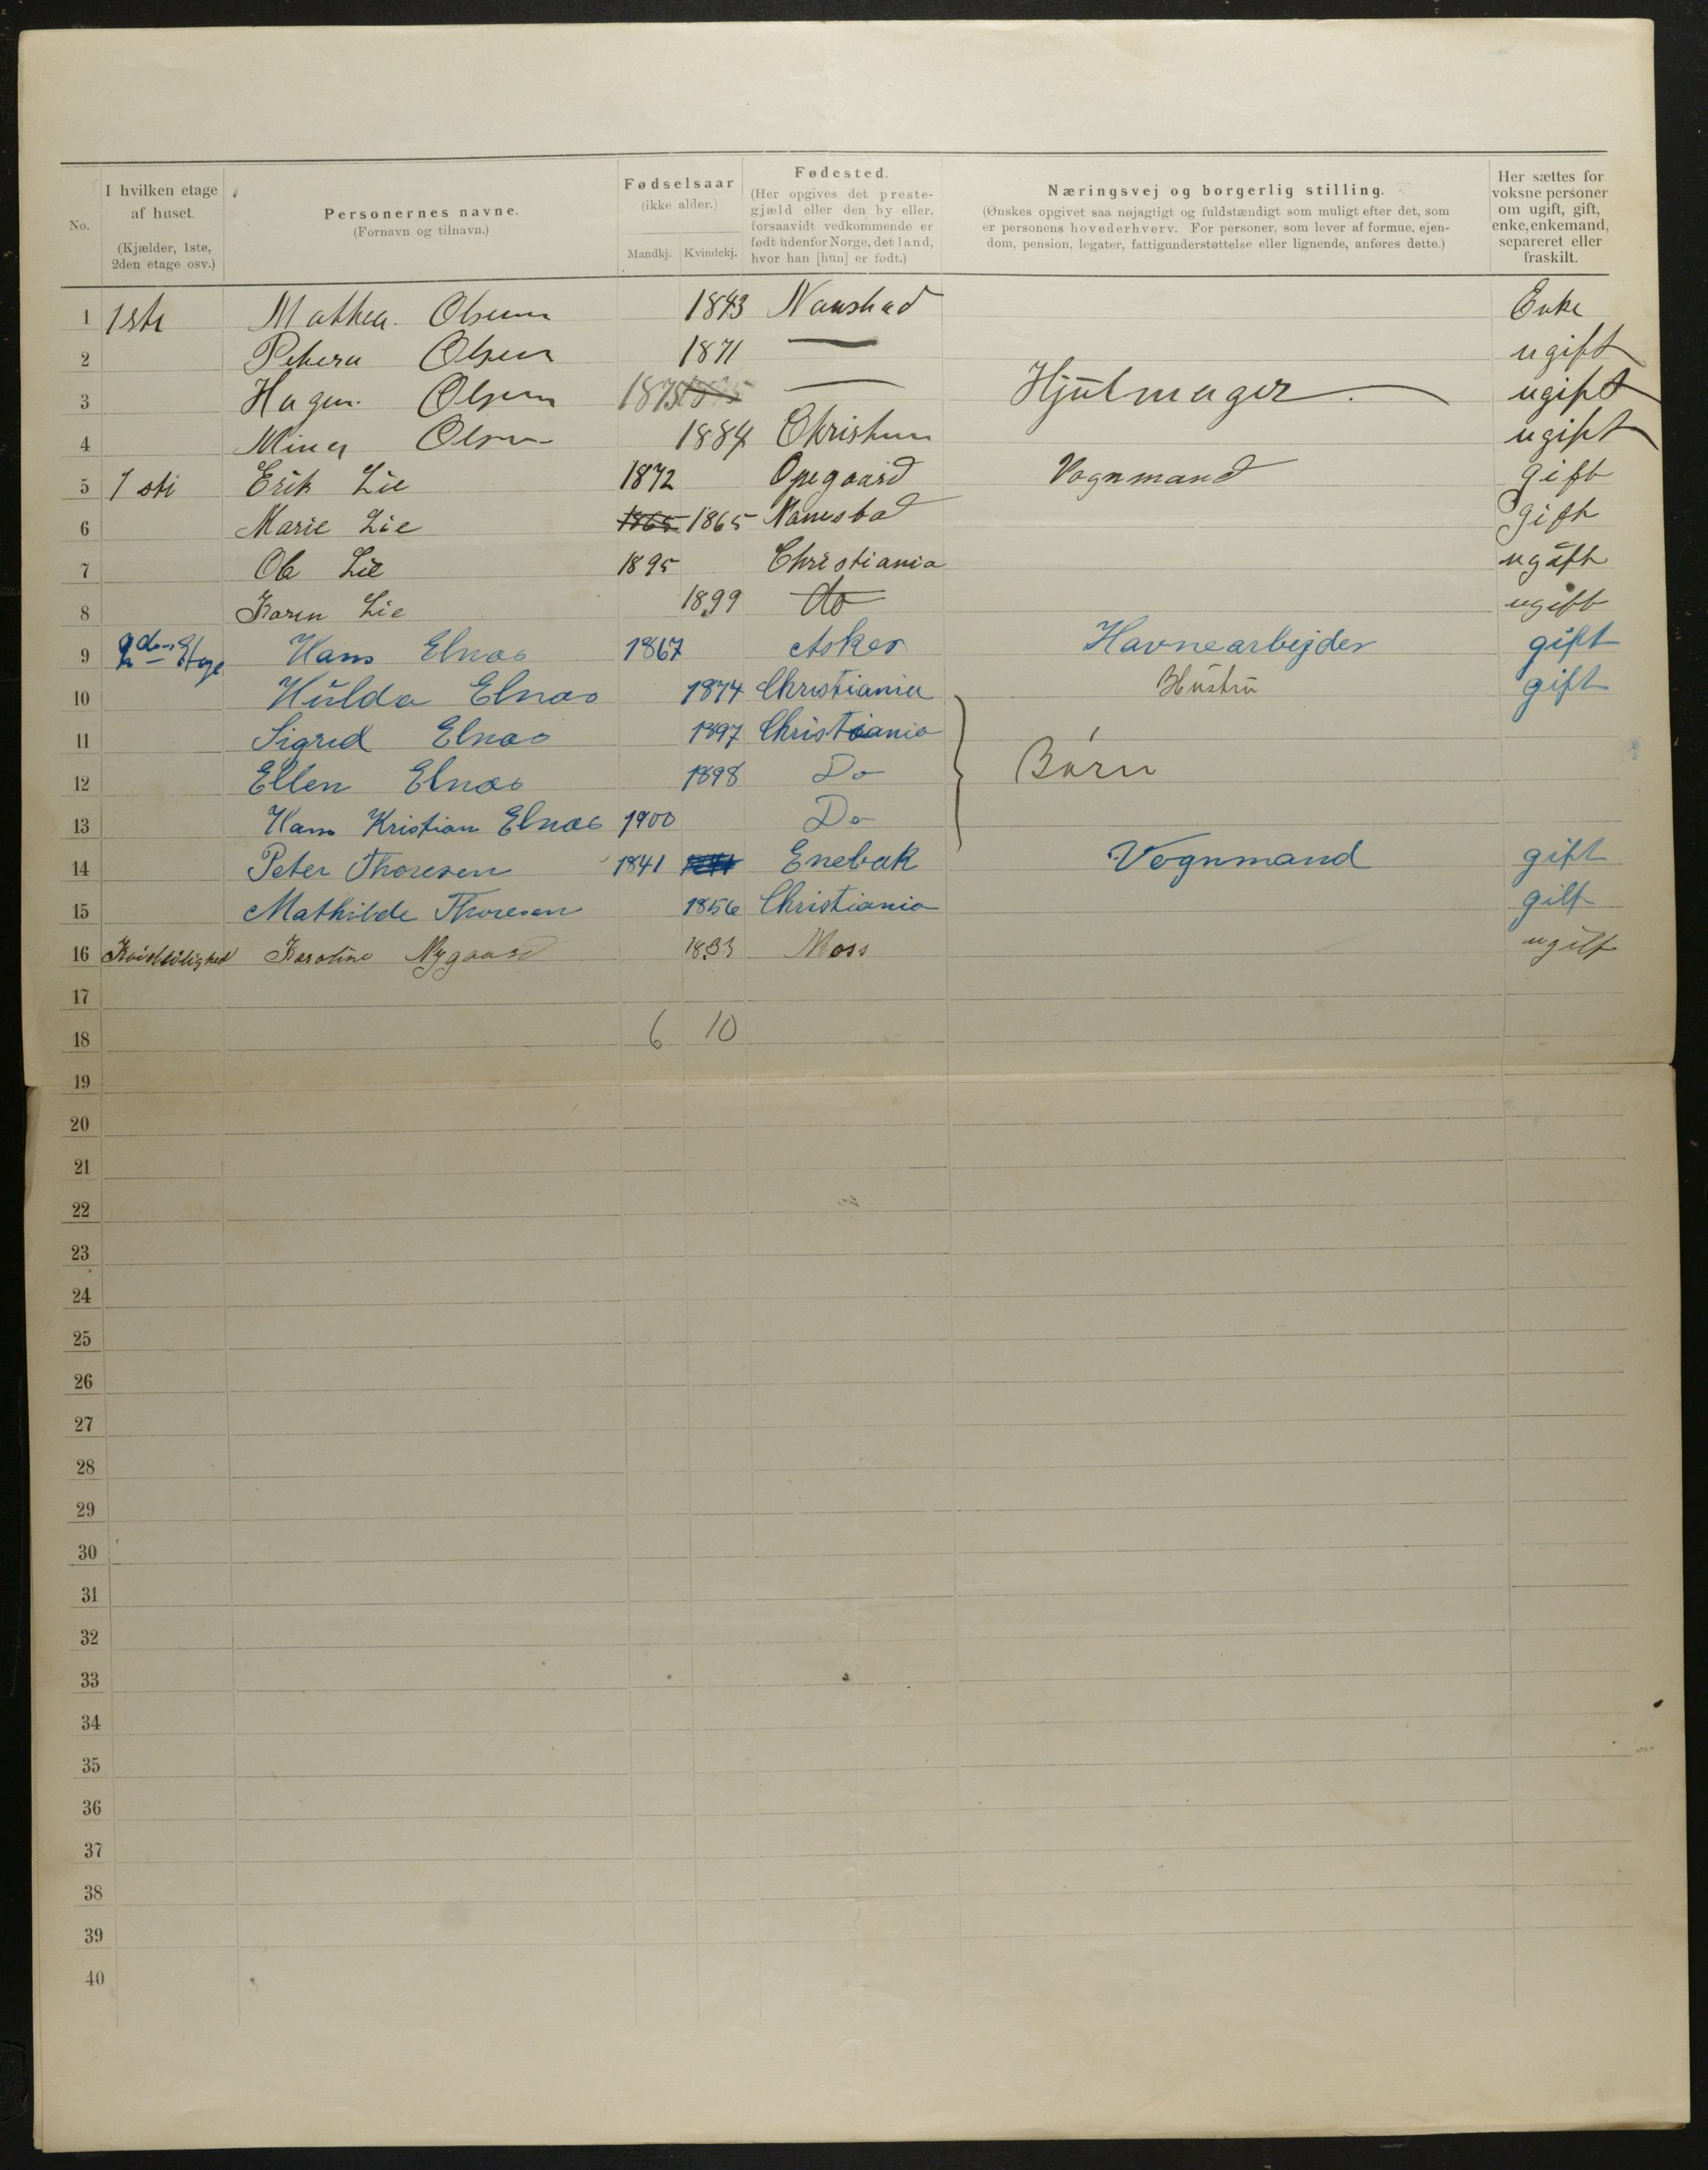 No.
I hvilken etage af huset. (Kjælder, 1ste, 2den etage osv.)
Personernes navne. (Fornavn og tilnavn.)
Fødselsaar (ikke alder.) Mandkj. Kvindekj.
Fødested. (Her opgives det prestegjæld eller den by eller, forsaavidt vedkommende er født udenfor Norge, det land, hvor han [hun] er født.)
Næringsvej og borgerlig stilling. (Ønskes opgivet saa nøjagtigt og fuldstændigt som muligt efter det, som er personens hovederhverv. For personer, som lever af formue, ejendom, pension, legater, fattigunderstøttelse eller lignende, anføres dette.)
Her sættes for voksne personer om ugift, gift, enke, enkemand, separeret eller fraskilt.
1 1ste Mathea. Olsen 1843 Enke
2 Olsen 1871 — ugift
3 Olsen 1875 — Hjulmager. — ugift
4 Mina Olsen 1884 ugift
5 1 ste Erik Lie 1872 Opegaard Vognmand gift
6 Marie Lie 1865 1865 Nannestad gift
7 Ole Lie 1895 Christiania ugift
8 Karen Lie 1899 do ugift
9 2den Etage Hans Elnæs 1867 Asker Havnearbejder gift
10 Hulda Elnæs 1874 Christiania Hustru gift
11 Sigrid Elnæs 1897 Christiania
12 Ellen Elnæs 1898 Do Børn
13 Hans Kristian Elnæs 1900 Do
14 Peter Thoresen 1841 Enebak Vognmand gift
15 Mathilde Thoresen 1856 Christiania gift
16 Karoline Nygaard 1833 Moss ugift
17
18 6 10
19
20
21
22
23
24
25
26
27
28
29
30
31
32
33
34
35
36
37
38
39
40